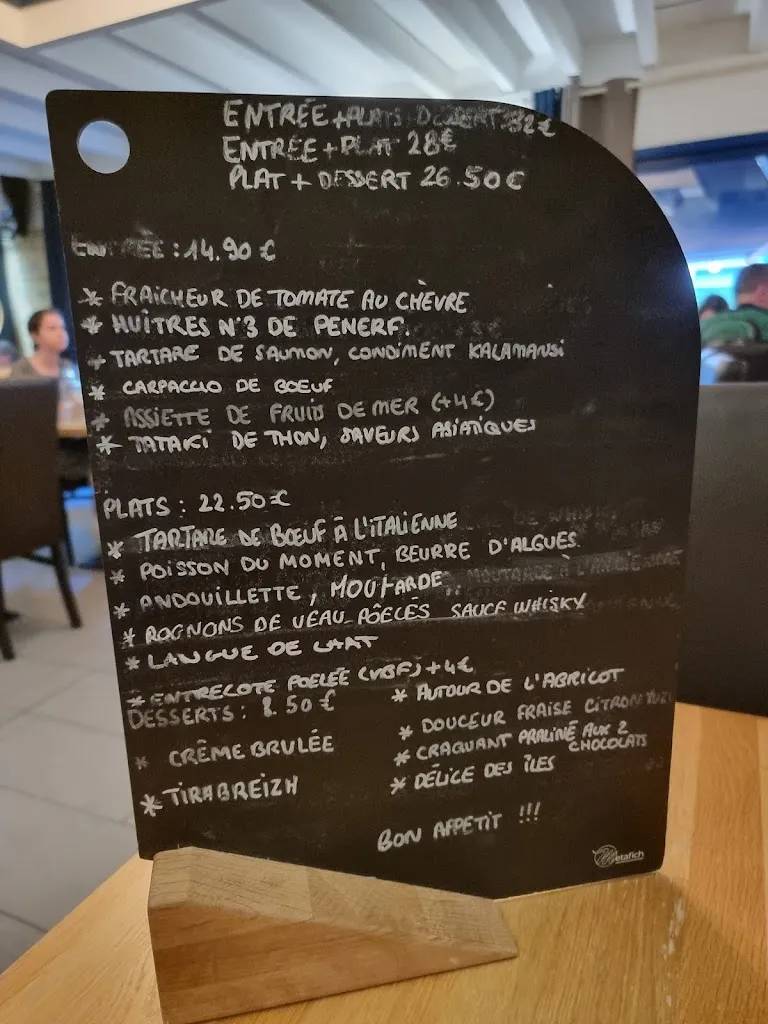 ENTRÉE + PLATS DESSERT 32€
ENTRÉE + PLAT 28€
PLAT + DESSERT 26.50€
ENTRÉE : 14.90 €
* FRAICHEUR DE TOMATE AU CHÈVRE
* HUÎTRES N°3 DE PENERF.
* TARTARE DE SAUMON, CONDIMENT KALAMANSI
* CARPACCIO DE BOEUF
* ASSIETTE DE FRUIS DE MER (+4€)
* TATAKI DE THON, SAVEURS ASIATIQUES
PLATS : 22.50€
* TARTARE DE BOEUF À L'ITALIENNE
* POISSON DU MOMENT, BEURRE D'ALGUES
* ANDOUILLETTE, MOUTARDE
* ROGNONS DE VEAU POÊLÉS SAUCE WHISKY
* LANGUE DE CHAT
* ENTRECOTE POELÉE (VBF) + 4€
DESSERTS : 8.50 €
* CRÈME BRULÉE
* TIRABREIZH
* AUTOUR DE L'ABRICOT
* DOUCEUR FRAISE CITRON YUZU
* CRAQUANT PRALINÉ AUX 2
CHOCOLATS
* DÉLICE DES ÎLES
BON APPETIT !!!
Metafich